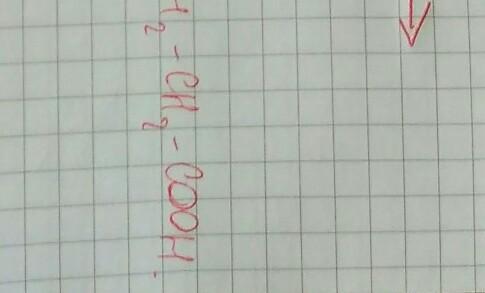 H₂ - CH₂ - COOH.